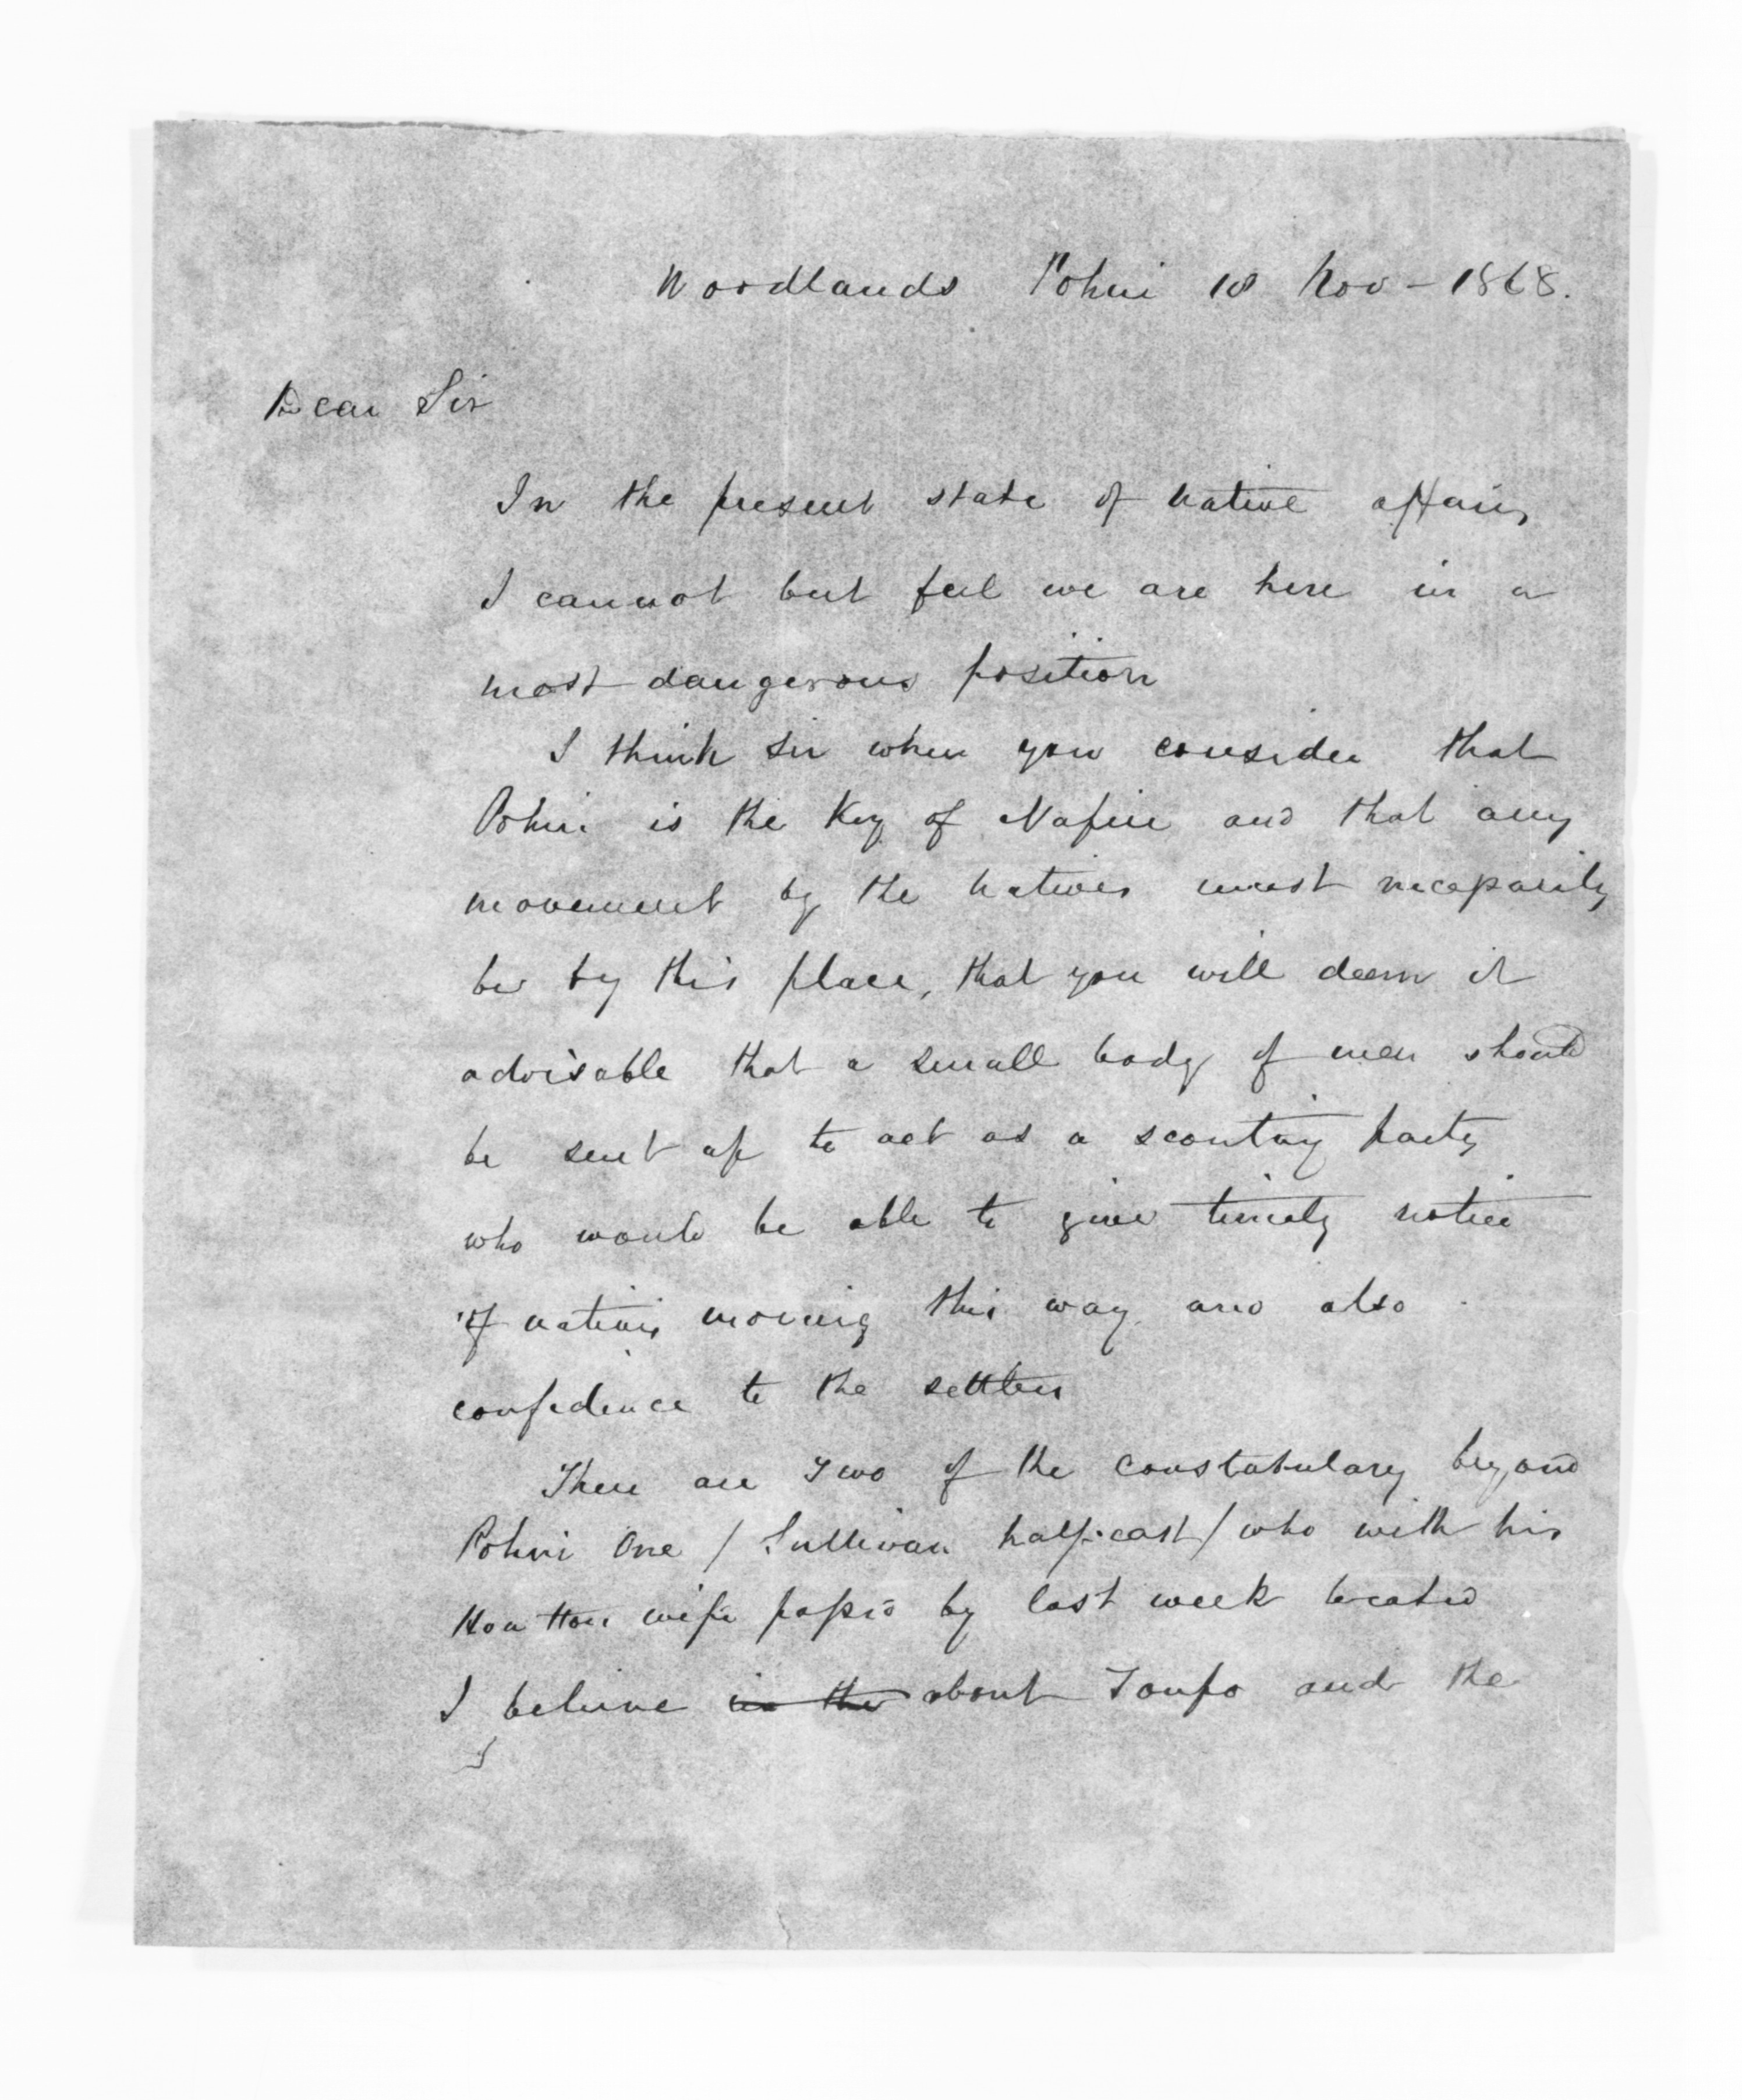 Woodlands Pohui 18 Nov - 1868.
Dear Sir
In the present state of native affairs
I cannot but feel we are here in a
most dangerous position
I think sir when you consider that
Pohui is the Key of Napier and that any
movement by the natives must necessarily
be by this place, that you will deem it
advisable that a small body of men should
be sent up to act as a scouting party
who would be able to give timely notice
of natives moving this way and also
confidence to the settlers
There are Two of the Constabulary beyond
Pohui One / Sullivan half-cast / who with his
Hau Hau wife passed by last week located
I believe in the about Taupo and the